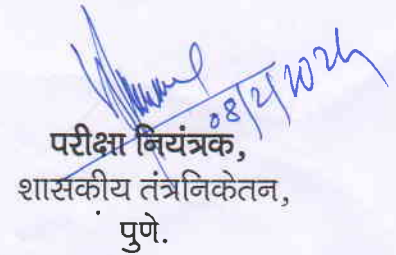 08/2/2024
परीक्षा नियंत्रक,
शासकीय तंत्रनिकेतन,
पुणे.